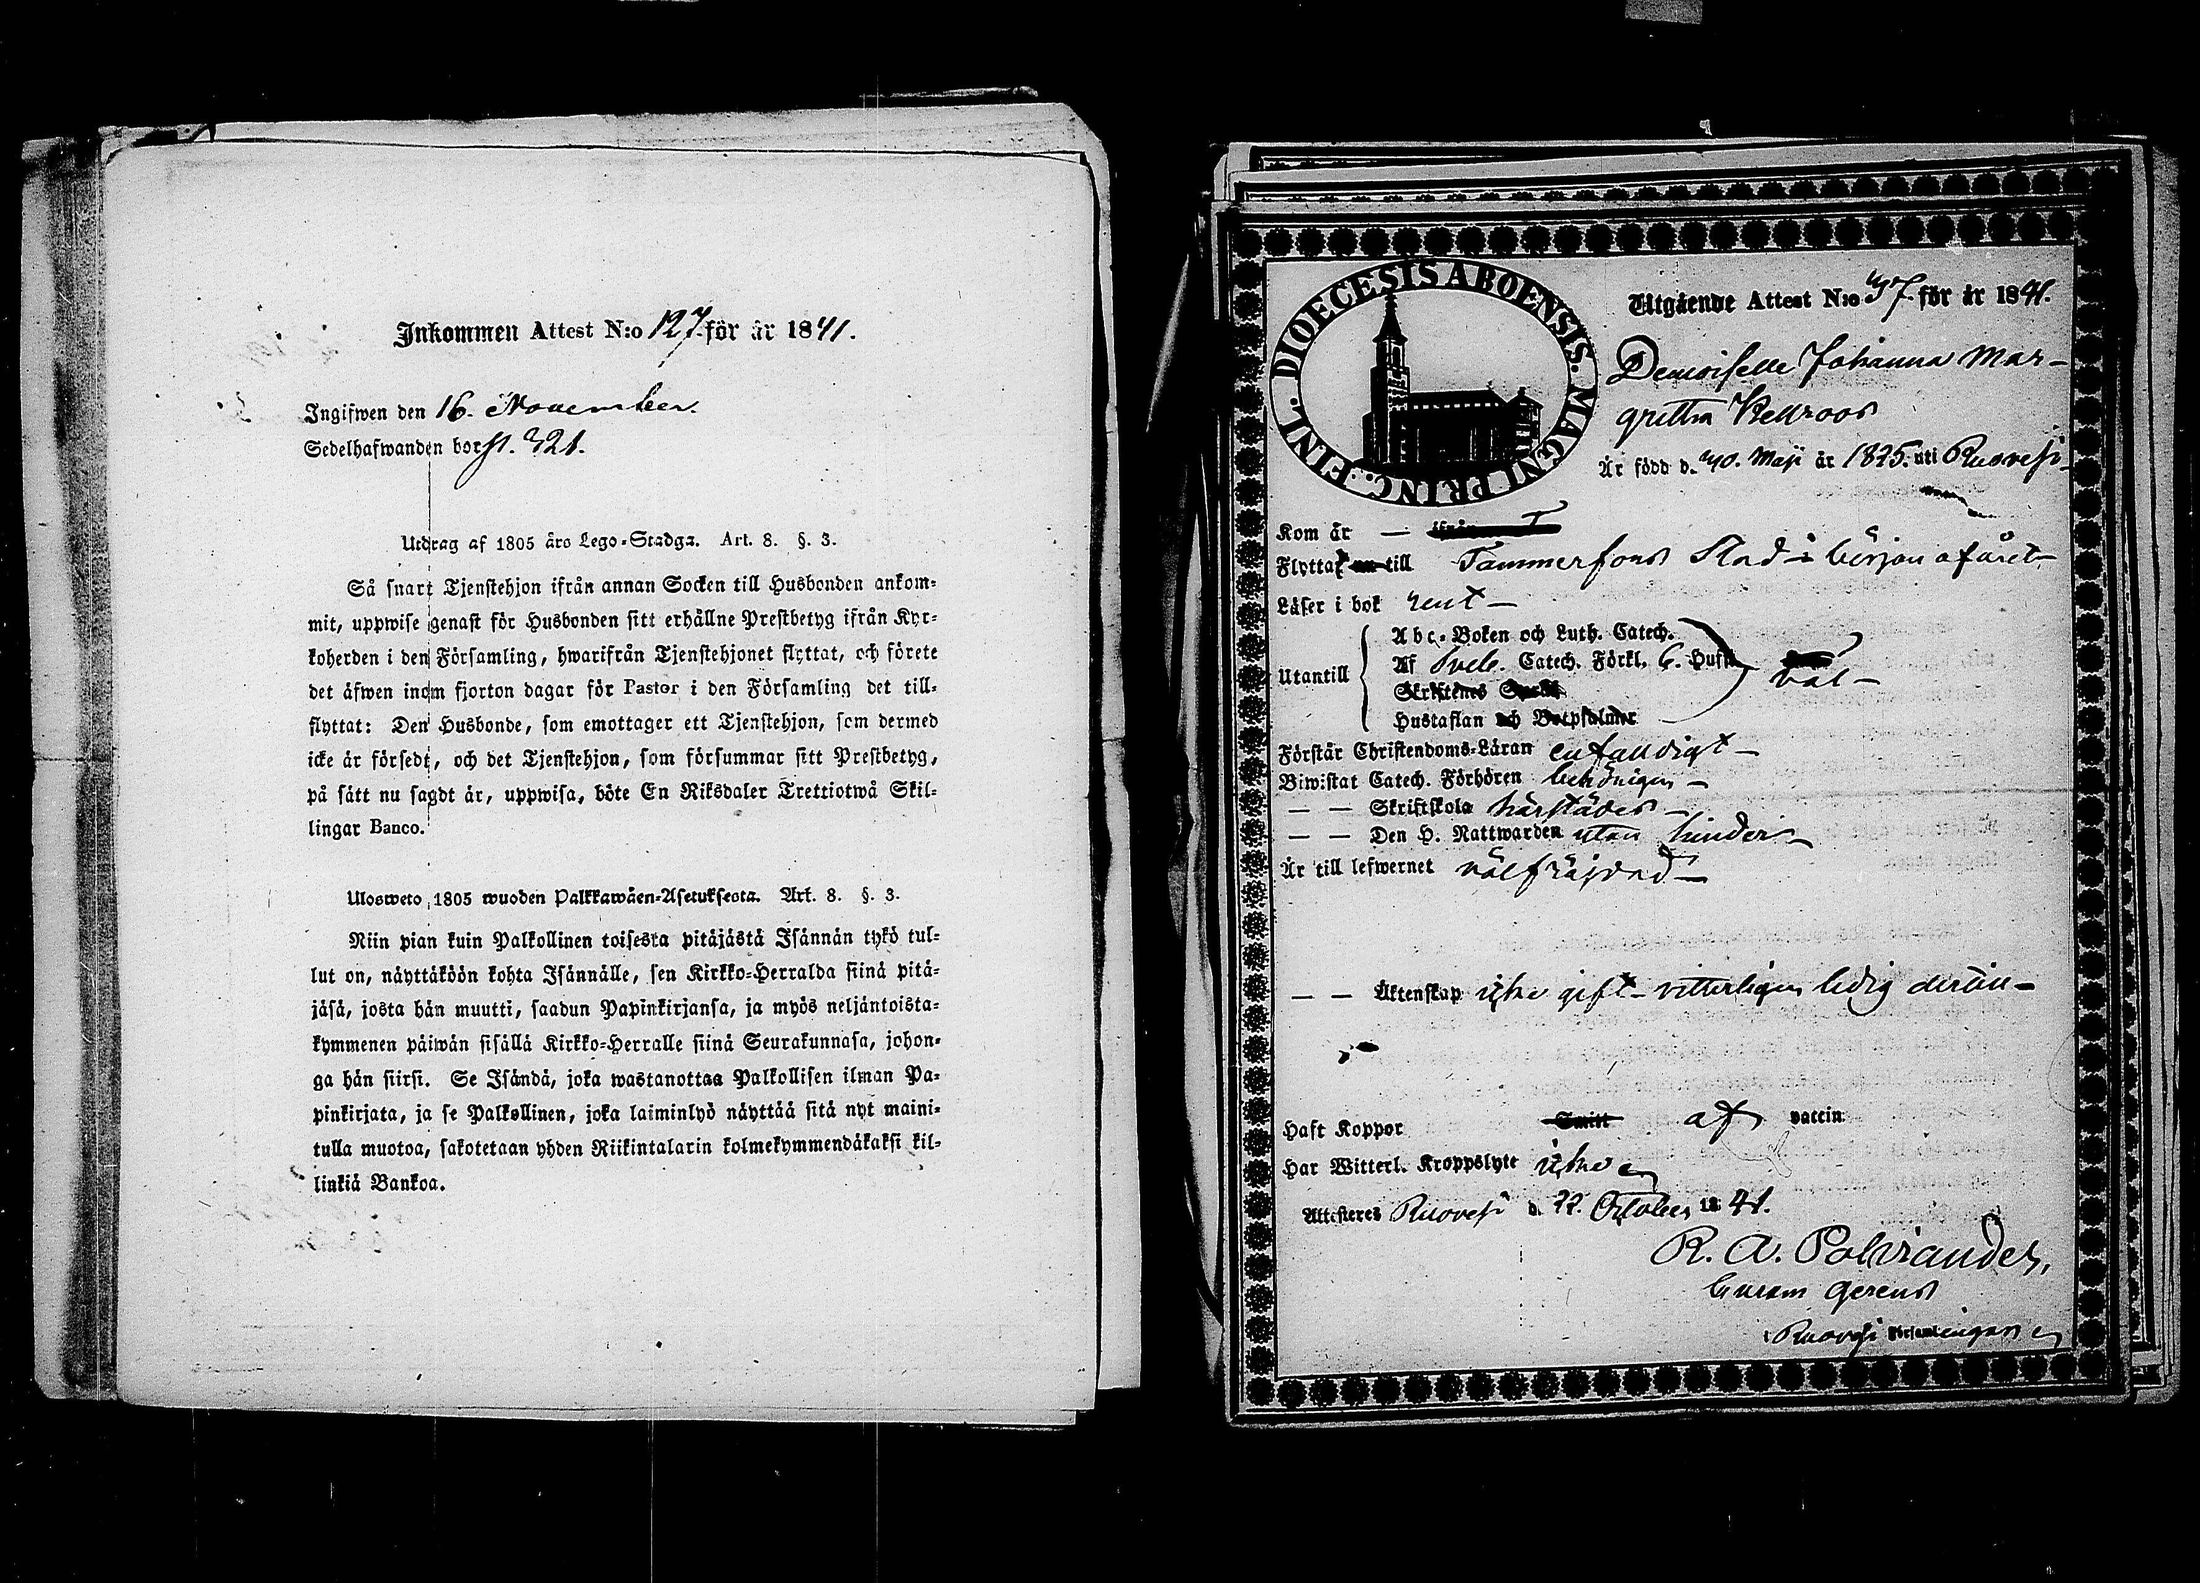 Inkommen Attest N:o 127 för år 1841.
Ingifwen den 16. November.
Sedelhafwanden bor st. 321.
Utdrag af 1805 års Lego-Stadga. Art. 8. §. 3.
Så snart Tjenstehjon ifrån annan Socken till Husbonden ankom-
mit, uppwise genast för Husbonden sitt erhållne Prestbetyg ifrån Kyr-
koherden i den Församling, hwarifrån Tjenstehjonet flyttat, och förete
det äfwen inom fjorton dagar för Pastor i den Församling det till-
flyttat: Den Husbonde, som emottager ett Tjenstehjon, som dermed
icke är försedt, och det Tjenstehjon, som försummar sitt Prestbetyg,
på sätt nu sagdt är, uppwisa, böte En Riksdaler Trettiotwå Skil-
lingar Banco.
Ulosweto 1805 wuoden Palkkawäen-Asetuksesta. Art. 8. §. 3.
Niin pian kuin Palkollinen toisesta pitäjästä Isännän tykö tul-
lut on, näyttäköön kohta Isännälle, sen Kirkko-Herralda siinä pitä-
jäsä, josta hän muutti, saadun Papinkirjansa, ja myös neljäntoista-
kymmenen päiwän sisällä Kirkko-Herralle siinä Seurakunnasa, johon-
ga hän siirsi. Se Isändä, joka wastanottaa Palkollisen ilman Pa-
pinkirjata, ja se Palkollinen, joka laiminlyö näyttää sitä nyt maini-
tulla muotoa, sakotetaan yhden Riikintalarin kolmekymmendäkaksi kil-
linkiä Bankoa.
DIOECESIS ABOENSIS. MAGNI PRINC. FINL.
Utgående Attest N:o 37. för år 1841.
Demoiselle Johanna Mar-
gretha Kellroos
Är född d. 30. Maji år 1825. uti Ruovesi
Kom år — ifrån
Flyttar nu till Tammerfors Stad i början af året
Läser i bok rent —
Utantill
Abc-Boken och Luth. Catech.
Af Sveb. Catech. Förkl. 6. Hufst.
Skriftenes Språk
Hustaflan och Botpsalmer
väl —
Förstår Christendoms-Läran enfaldigt —
Biwistat Catech. Förhören behörigen —
— — Skriftskola härstädes —
— — Den H. Nattwarden utan hinder —
Är till lefwernet välfräjdad —
— — Äktenskap icke gift — vitterligen ledig dertill —
Haft Koppor Smitt af vaccin
Har Witterl. Kroppslyte icke
Attesteres Ruovesi d. 22. October 1841.
R. A. Polviander,
Curam gerens
i Ruovesi Församlingen